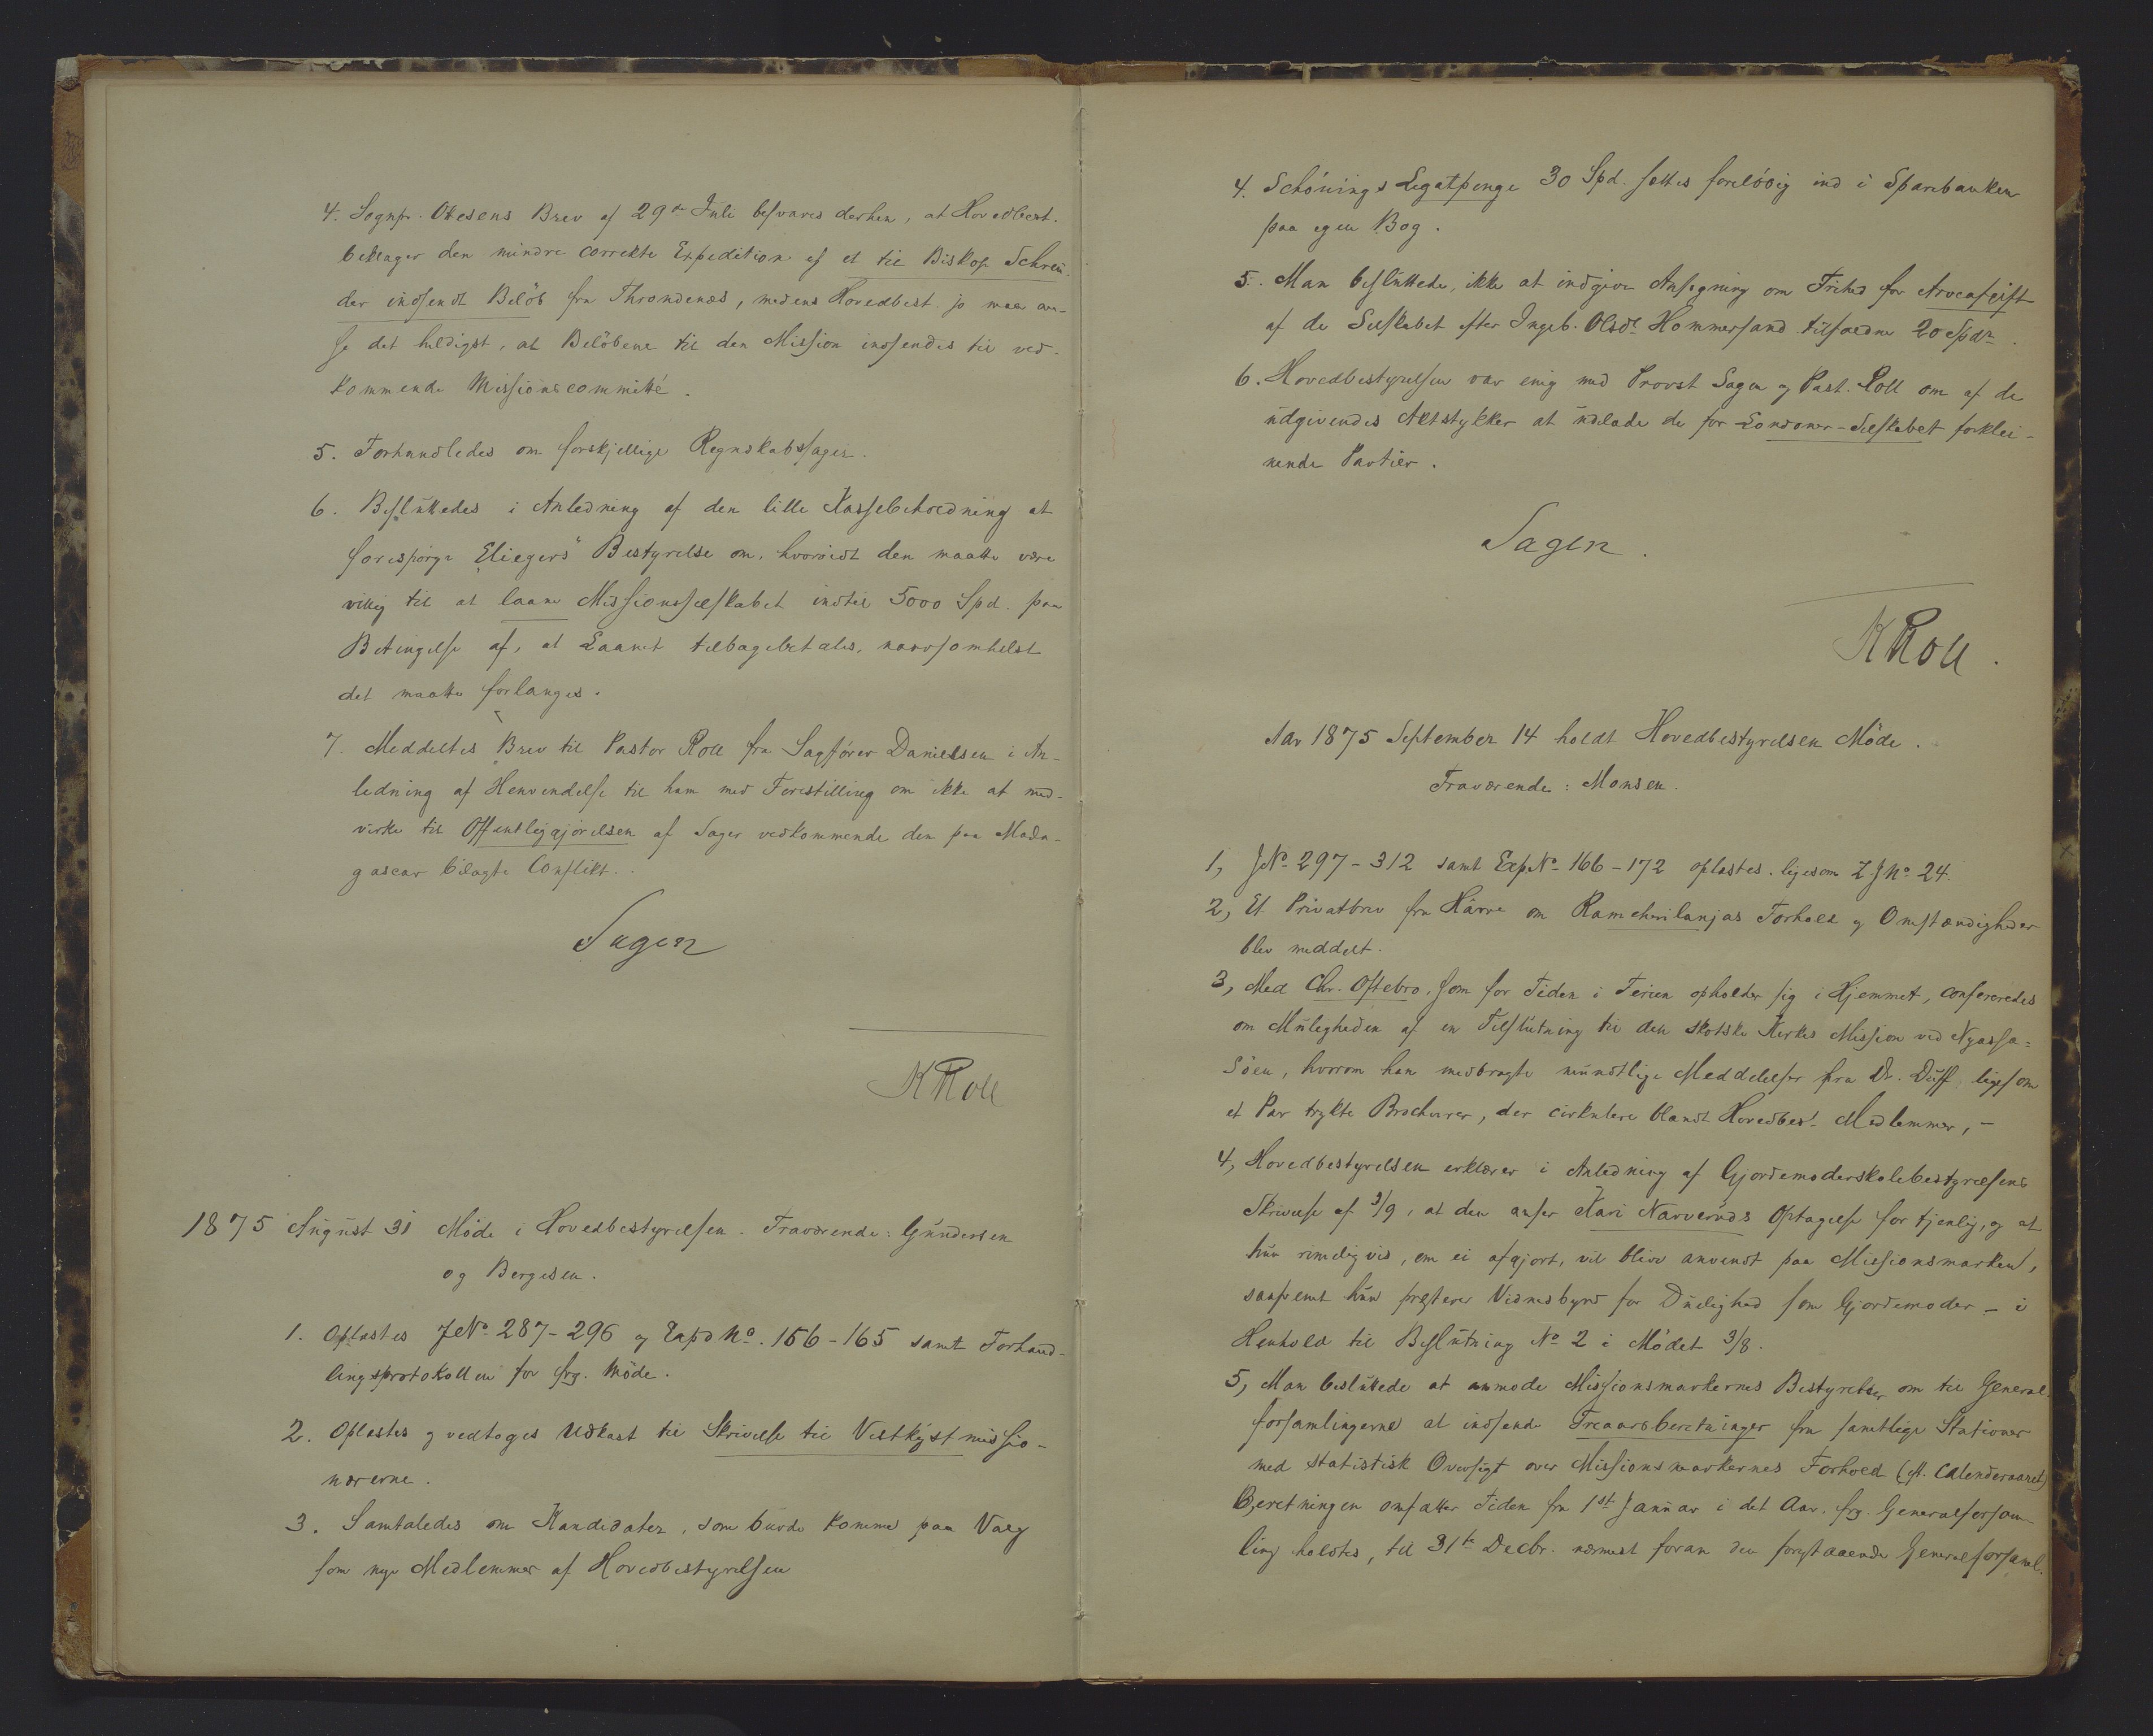 4. Sognpr. Otesens Brev af 29de Juli besvares derhen, at Hovedbest.
beklager den mindre correkte Expedition af et til Biskop Schreu-
der indsendt Beløb fra Throndenæs, medens Hovedbest. jo maa an-
se det heldigst, at Beløbene til den Mission indsendes til ved-
kommende Missionscommitté.
5. Forhandledes om forskjellige Regnskabssager.
6. Besluttedes i Anledning af den lille Kassebeholdning at
forespørge „Eliezers" Bestyrelse om, hvorvidt den maatte være
villig til at laane Missionsselskabet indtil 5000 Spd. paa
Betingelse af, at Laanet tilbagebetales, naarsomhelst
det maatte forlanges.
7. Meddeltes Brev til Pastor Roll fra Sagfører Danielsen i An-
ledning af Henvendelse til ham med Forestilling om ikke at med-
virke til Offentliggjørelsen af Sager vedkommende den paa Mada-
gascar bilagte Conflikt.
Sagen
KRoll
1875 August 31 Møde i Hovedbestyrelsen. Fraværende: Gundersen
og Borgesen.
1. Oplæstes JNo. 287-296 og Expd No. 156-165 samt Forhand-
lingsprotokollen for frg. Møde.
2. Oplæstes og vedtoges Udkast til Skrivelse til Vestkystmissio-
nærerne.
3. Samtaledes om Kandidater, som burde komme paa Valg
som nye Medlemmer af Hovedbestyrelsen
4. Schönings Legatpenge 30 Spd. sættes foreløbig ind i Sparebanken
paa egen Bog.
5. Man besluttede, ikke at indgive Ansøgning om Frihed for Arveafgift
af de Selskabet efter Ingeb. Olsdr Hommersand tilfaldne 20 Spdr.
6. Hovedbestyrelsen var enig med Provst Sagen og Past. Roll om af de
udgivendes Aktstykker at udelade de for Londoner-Selskabet forklei-
nende Partier.
Sagen.
KRoll.
Aar 1875 September 14 holdt Hovedbestyrelsen Møde.
Fraværende: Monsen.
1, JNo 297-312 samt ExpNo 166-172 oplæstes, ligesom Z.JNo 24.
2, Et Privatbrev fra om Forhold og Omstændigheder
blev meddelt.
3, Med Chr. Oftebro, som for Tiden i Ferien opholder sig i Hjemmet, confereredes
om Muligheden af en Tilslutning til den skotske Kirkes Mission ved Nyassa-
Søen, hvorom han medbragte mundtlige Meddelelser fra Dr. Duff, ligesom
et Par trykte Brochurer, der cirkulere blandt Hovedbest. Medlemmer, -
4, Hovedbestyrelsen erklærer i Anledning af Gjordemoderskolebestyrelsens
Skrivelse af 3/9, at den anser Kari Narveruds Optagelse for tjenlig, og at
hun rimeligvis, om ei afgjort, vil blive anvendt paa Missionsmarken,
saafremt hun præsterer Vidnesbyrd for Duelighed som Gjordemoder - i
Henhold til Beslutning No 2 i Mødet 3/8.
5, Man besluttede at anmode Missionsmarkernes Bestyrelser om til General-
forsamlingerne at indsende Treaarsberetninger fra samtlige Stationer
med statistisk Oversigt over Missionsmarkernes Forhold (eft. Calenderaaret)
Beretningen omfatter Tiden fra 1st Januar i det Aar, frg. Generalforsam-
ling holdtes, til 31te Decbr. nærmest foran den forestaaende Generalforsaml.